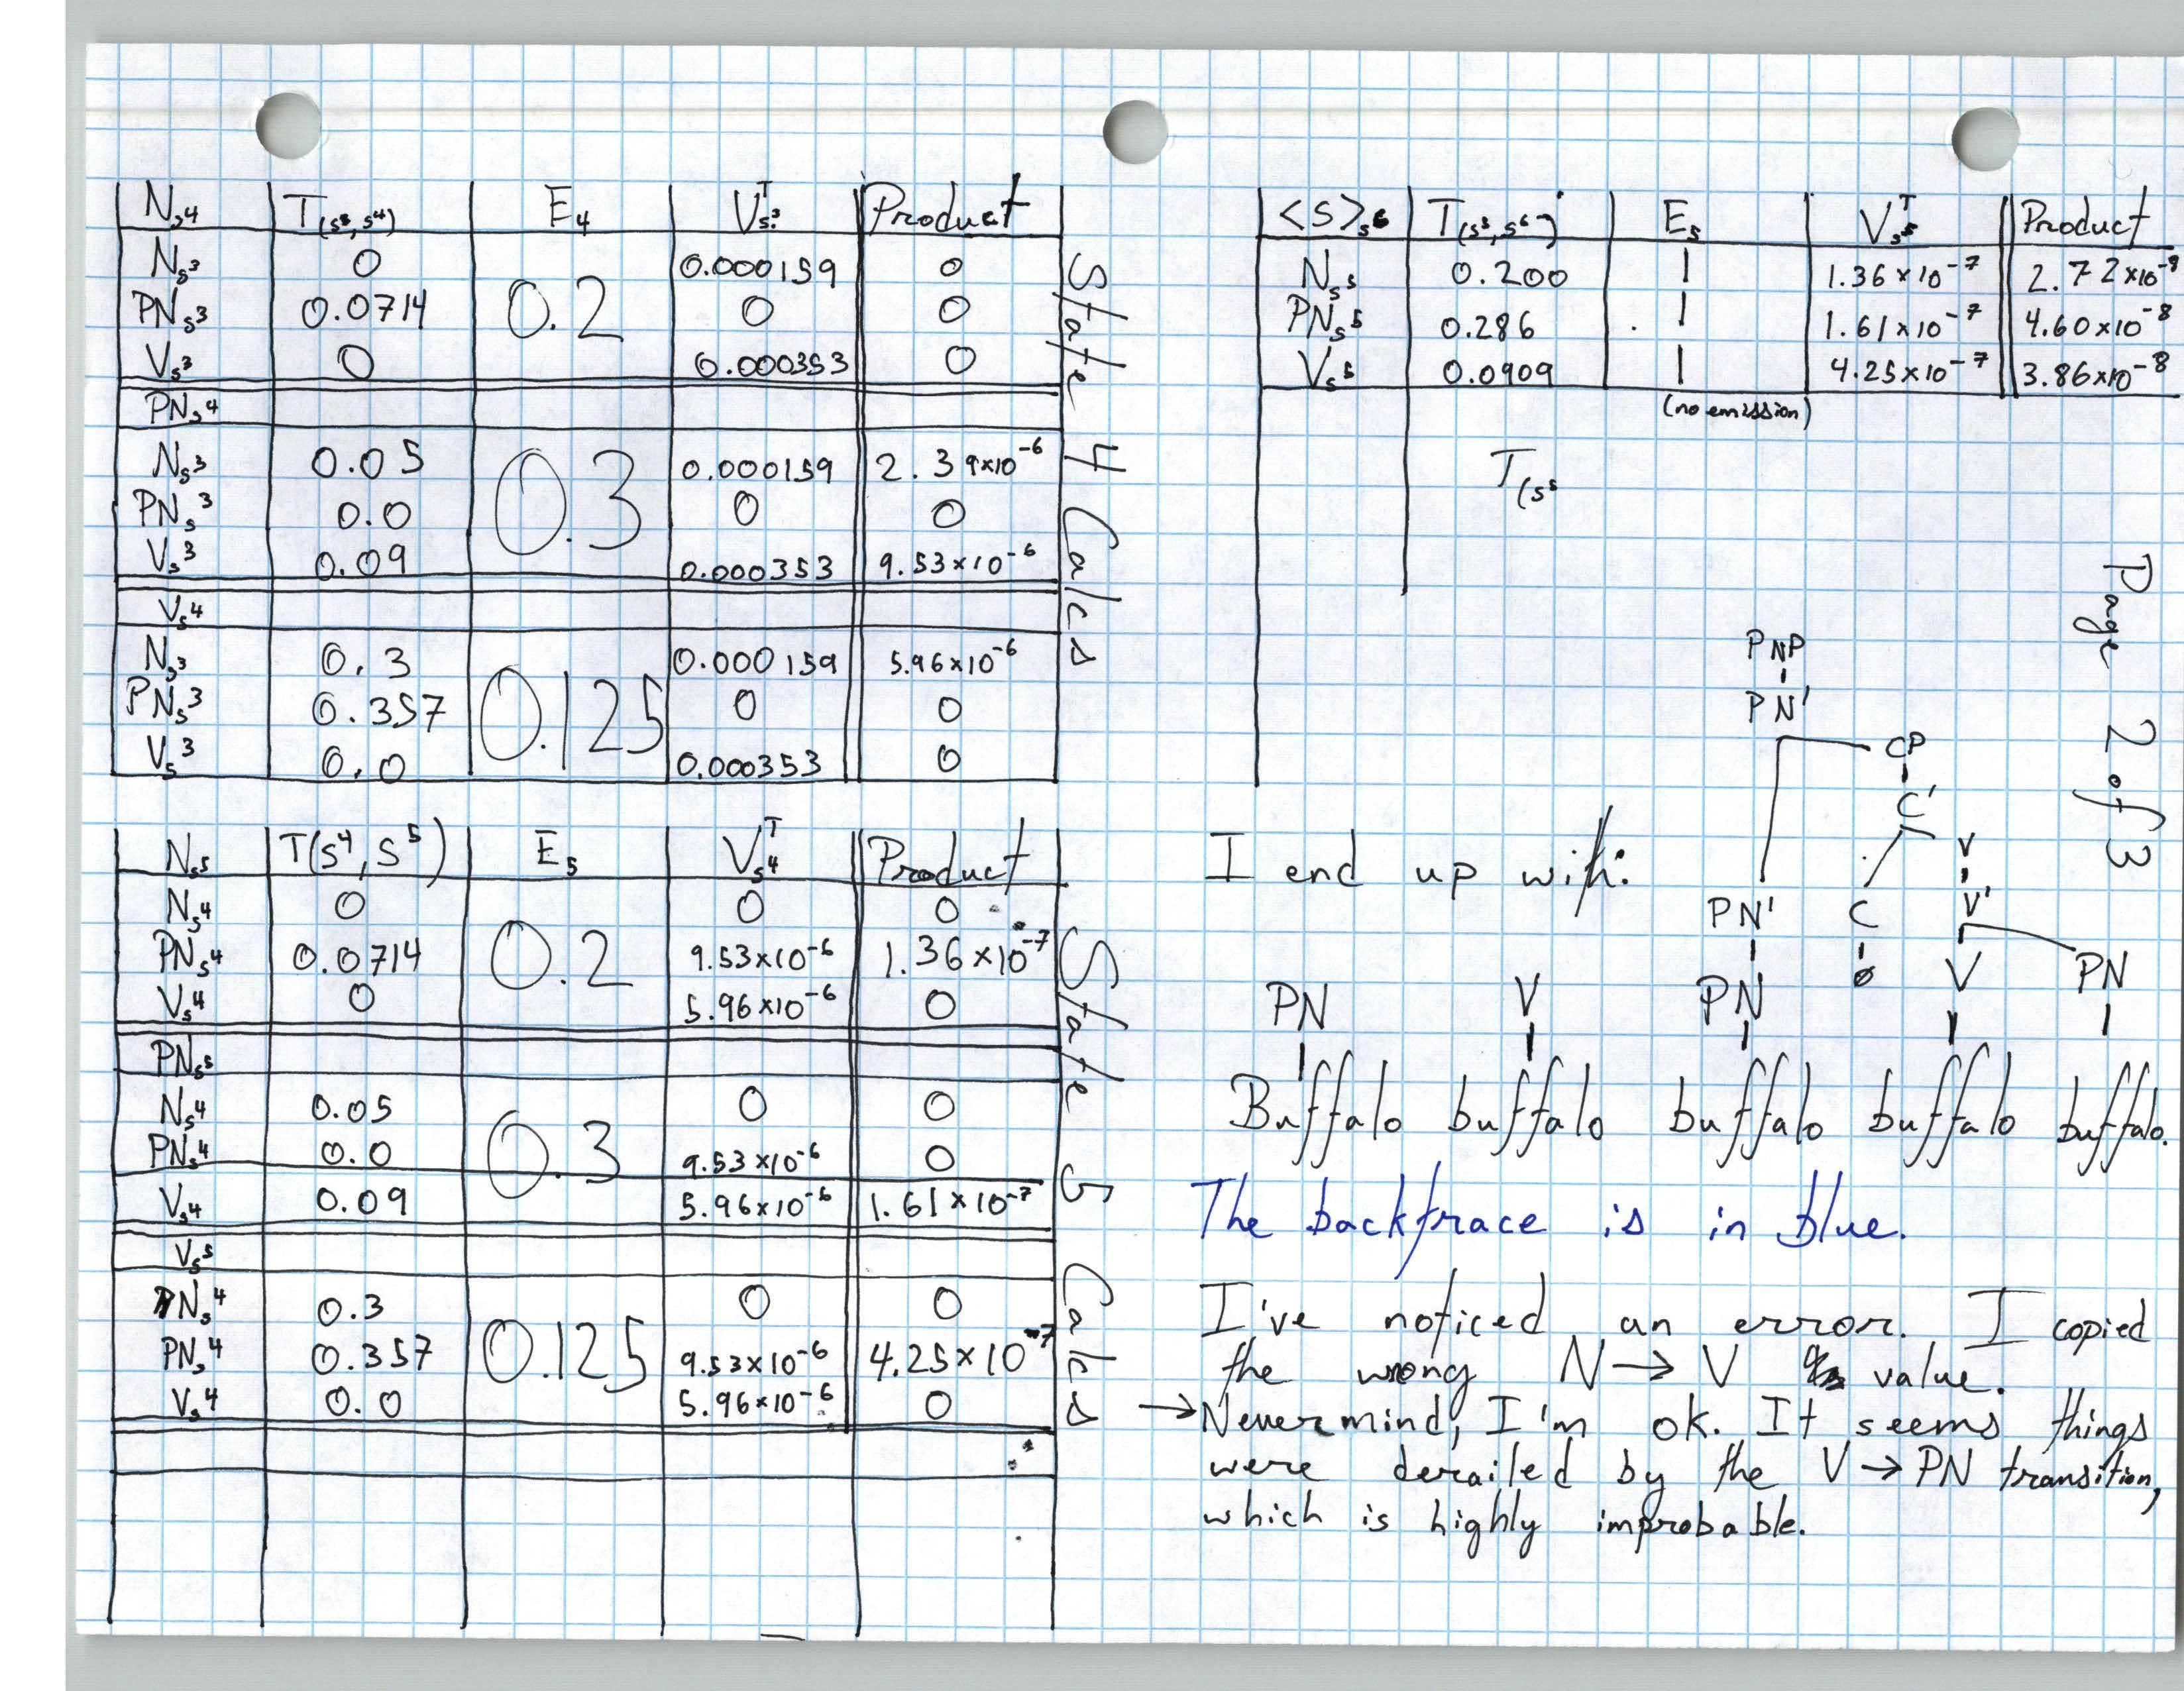 N_s4 T(s³,s⁴) E₄ Vᵀ_s³ Product
N_s³ 0 0.000159 0
PN_s³ 0.0714 0.2 0 0
V_s³ 0 0.000353 0
PN_s4
N_s³ 0.05 0.000159 2.39x10⁻⁶
PN_s³ 0.0 0.3 0 0
V_s³ 0.09 0.000353 9.53x10⁻⁶
V_s4
N_s³ 0.3 0.000159 5.96x10⁻⁶
PN_s³ 0.357 0.125 0 0
V_s³ 0.0 0.000353 0
State 4 Calcs
N_s5 T(s⁴, s⁵) E₅ Vᵀ_s4 Product
N_s4 0 0 0
PN_s4 0.0714 0.2 9.53x10⁻⁶ 1.36x10⁻⁷
V_s4 0 5.96x10⁻⁶ 0
PN_s5
N_s4 0.05 0 0
PN_s4 0.0 0.3 9.53x10⁻⁶ 0
V_s4 0.09 5.96x10⁻⁶ 1.61x10⁻⁷
V_s5
N_s4 0.3 0 0
PN_s4 0.357 0.125 9.53x10⁻⁶ 4.25x10⁻⁷
V_s4 0.0 5.96x10⁻⁶ 0
State 5 Calcs
<S>_s6 T(s⁵,s⁶) E₅ Vᵀ_s5 Product
N_s5 0.200 1 1.36x10⁻⁷ 2.72x10⁻⁸
PN_s5 0.286 1 1.61x10⁻⁷ 4.60x10⁻⁸
V_s5 0.0909 1 4.25x10⁻⁷ 3.86x10⁻⁸
(no emission)
T(s⁵
Page 2 of 3
PNP
PN'
CP
C'
V
I end up with:
PN' C V'
ø
PN V PN V PN
Buffalo buffalo buffalo buffalo buffalo.
The backtrace is in blue.
I've noticed an error. I copied
the wrong N → V value.
→ Nevermind, I'm ok. It seems things
were derailed by the V → PN transition,
which is highly improbable.